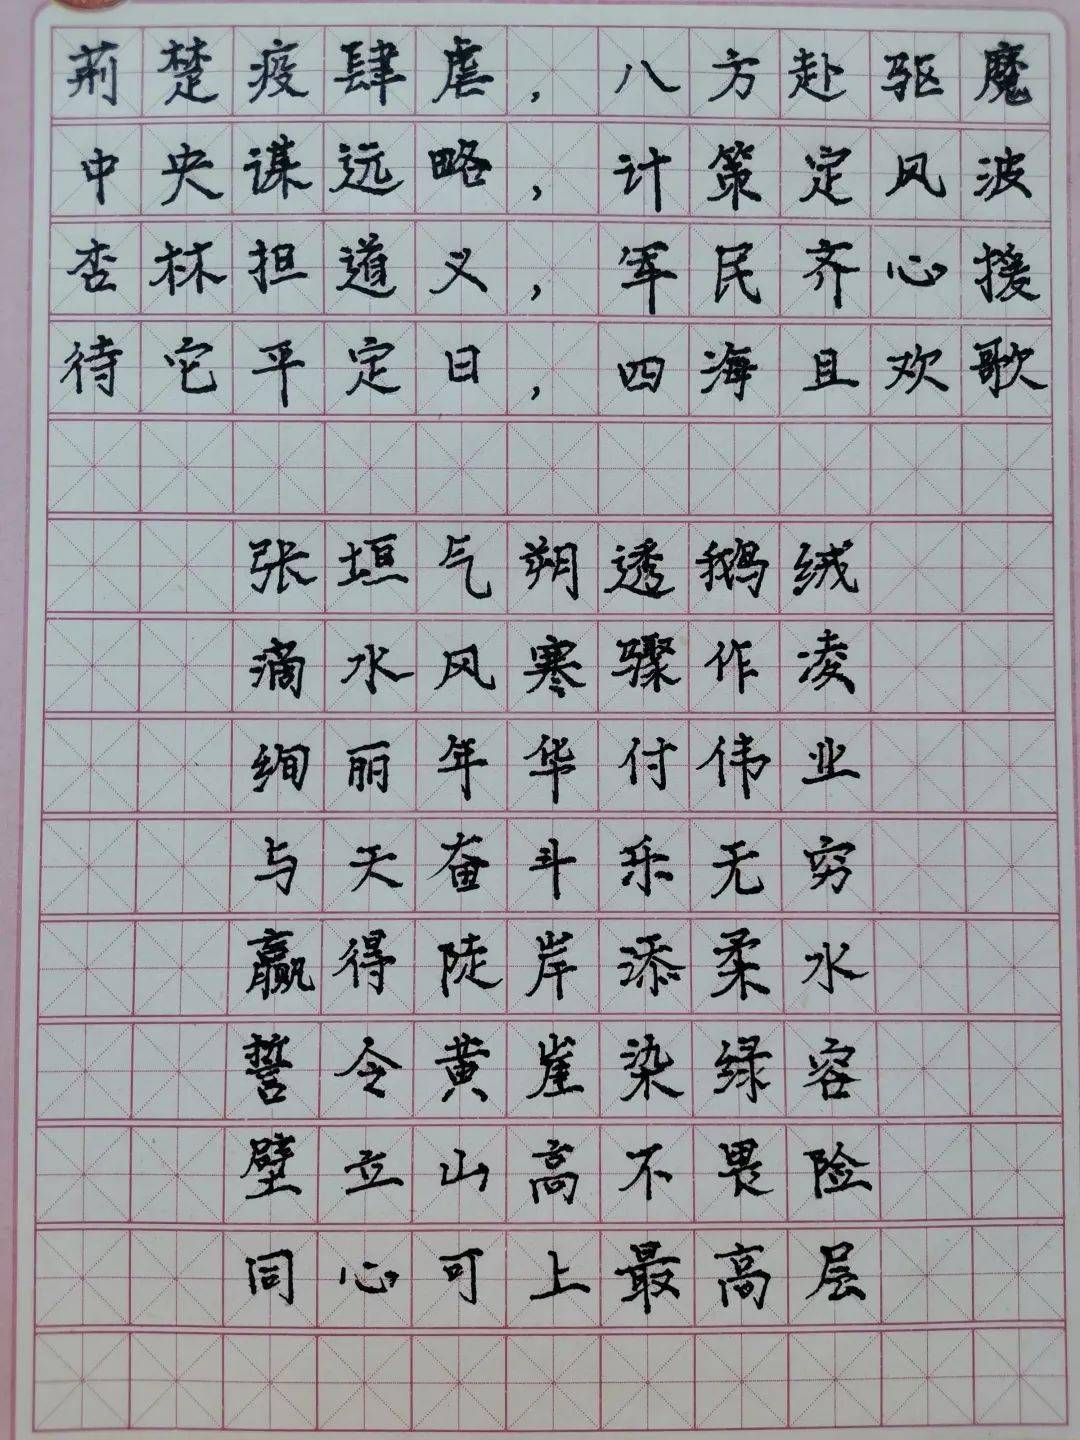 荆楚疫肆虐，八方赴驱魔
中央谋远略，计策定风波
杏林担道义，军民齐心援
待它平定日，四海且欢歌
张垣气朔透鹅绒
滴水风寒骤作凌
绚丽年华付伟业
与天奋斗乐无穷
赢得陡岸添柔水
誓令黄崖染绿容
壁立山高不畏险
同心可上最高层